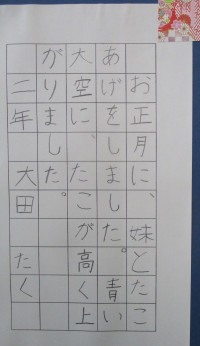 お正月に、妹とたこ
あげをしました。青い
大空に、たこが高く上
がりました。
二年 大田 たく